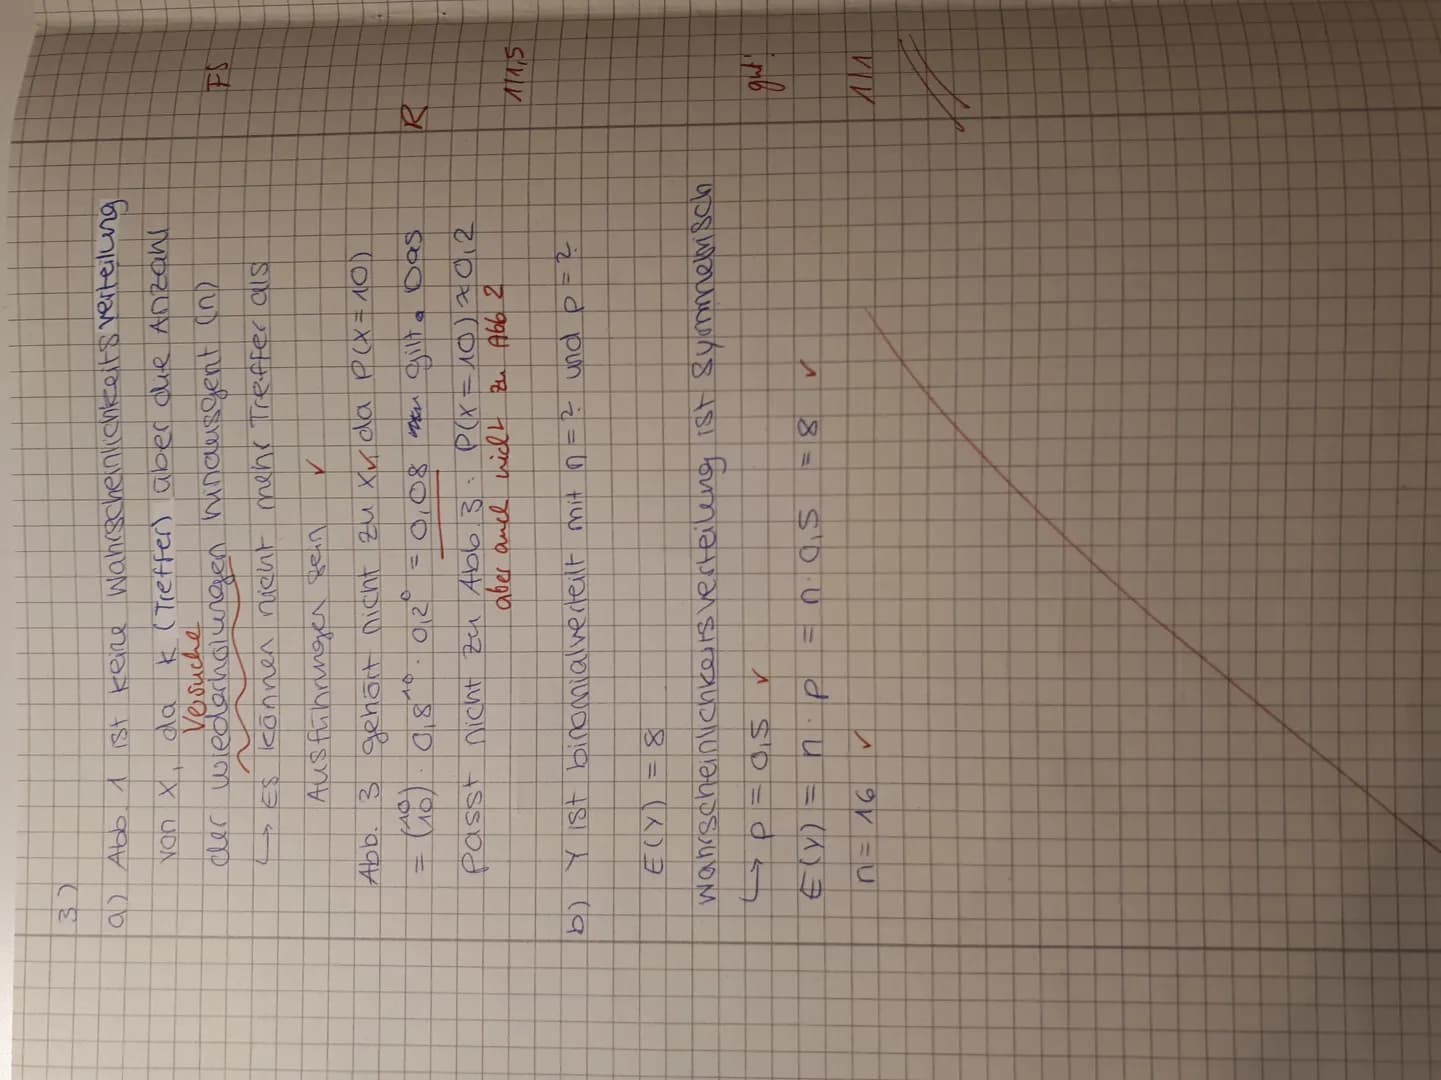 3)
a) Abb. 1 ist keine Wahrscheinlichkeitsverteilung
von X, da k (Treffer) über die Anzahl
Versuche
der Wiederholungen hinausgeht (n) FS
↳ Es können nicht mehr Treffer als
Ausführungen sein ✓
Abb. 3 gehört nicht zu X ✓, da P(X=10)
= (10 10) · 0,8^10 · 0,2^0 = 0,08 gilt. Das R
passt nicht zu Abb. 3: P(X=10) ≈ 0,2
aber auch nicht zu Abb. 2 1/1,5
b) Y ist binomialverteilt mit n=? und p=?
E(Y) = 8
Wahrscheinlichkeitsverteilung ist symmetrisch
↳ p = 0,5 ✓ gut!
E(Y) = n · p = n · 0,5 = 8 ✓
n = 16 ✓ 1/1